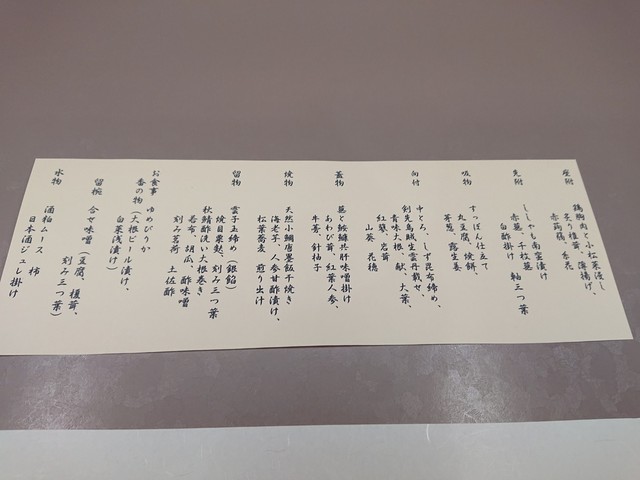 座附
鶏胸肉と小松菜浸し
炙り椎茸、薄揚げ、
赤蒟蒻、糸花
先附
ししゃも南蛮漬け
赤蕪、千枚蕪 軸三つ葉
白酢掛け
吸物
すっぽん仕立て
丸豆腐、焼餅、
芽葱、露生姜
向付
中とろ、しず昆布締め、
剣先烏賊生雲丹載せ、
青味大根、献、大葉、
紅蓼、岩茸
山葵 花穂
蓋物
蕪と鮟鱇共肝味噌掛け
あわび茸、紅葉人参、
牛蒡、針柚子
焼物
天然小鯛唐墨飯干焼き
海老子、人参甘酢漬け、
松葉蕎麦 煎り出汁
留物
雲子玉締め(銀餡)
焼目粟麩、刻み三つ葉
秋鯖酢洗い大根巻き
若布、胡瓜、酢味噌
刻み茗荷 土佐酢
お食事 ゆめぴりか
香の物(大根ビール漬け、
白菜浅漬け)
留椀 合せ味噌(豆腐、榎茸、
刻み三つ葉)
水物
酒粕ムース 柿
日本酒ジュレ掛け